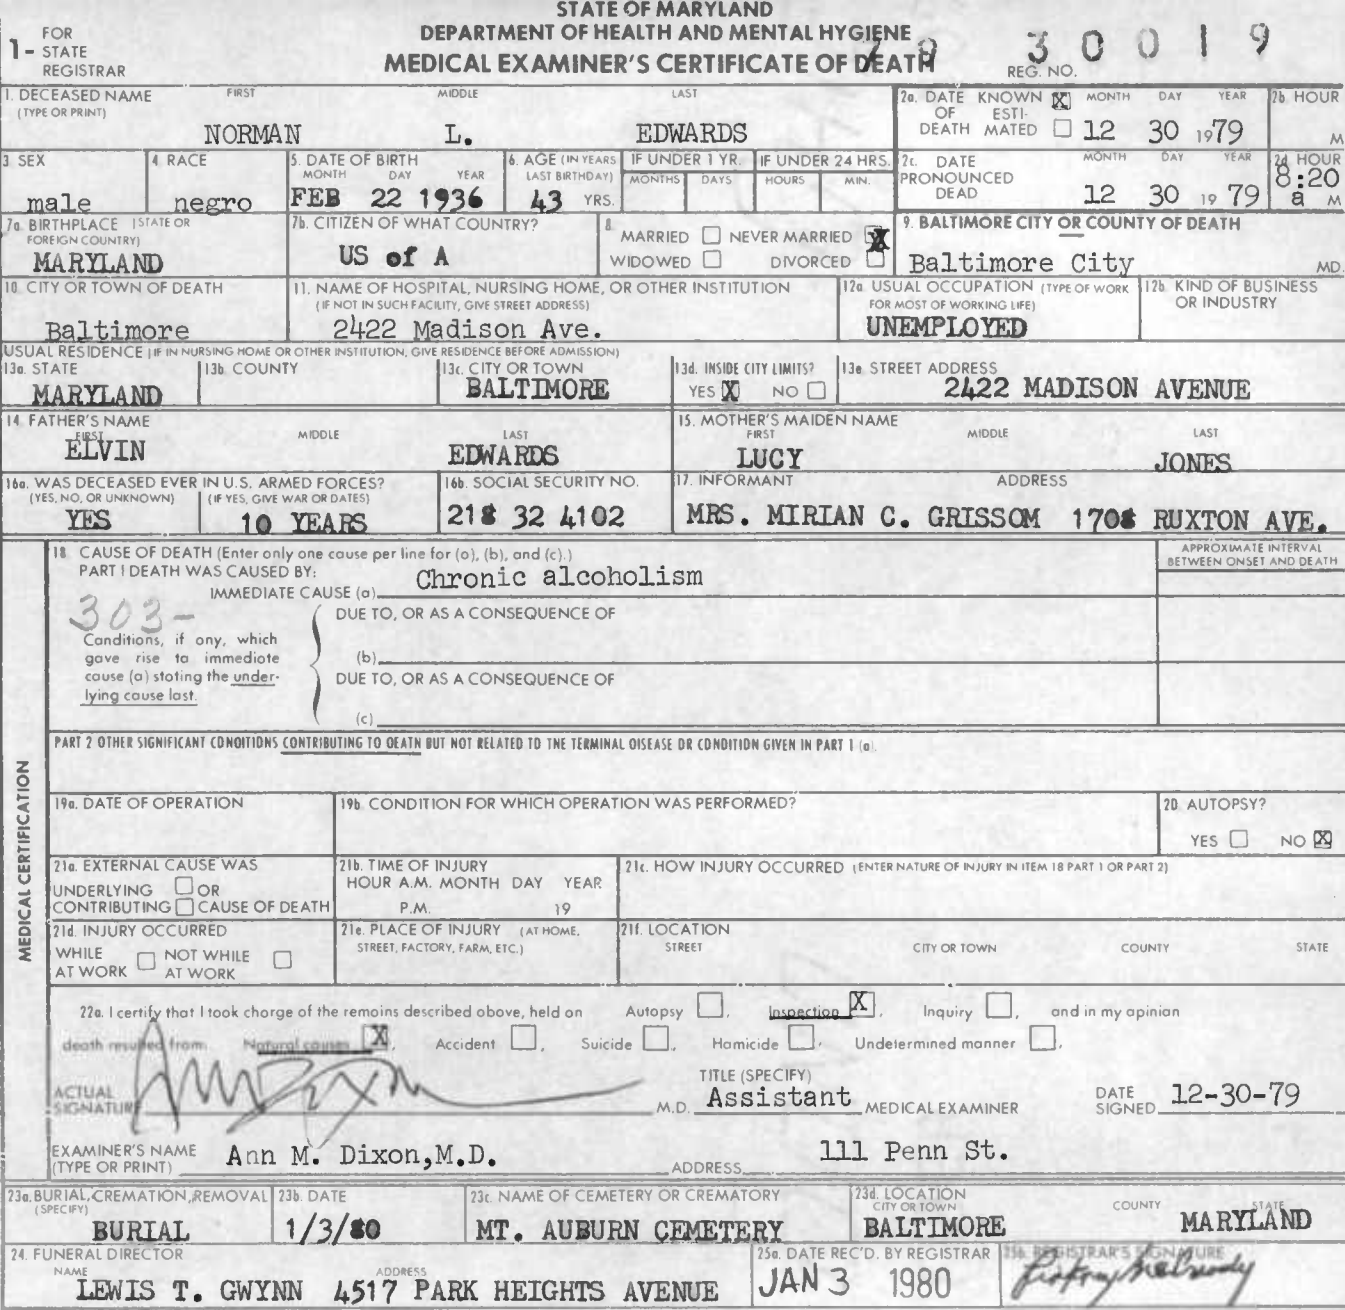 STATE OF MARYLAND
DEPARTMENT OF HEALTH AND MENTAL HYGIENE
MEDICAL EXAMINER'S CERTIFICATE OF DEATH
1- FOR STATE REGISTRAR
79 30019
REG. NO.
1. DECEASED NAME (TYPE OR PRINT) FIRST MIDDLE LAST
NORMAN L. EDWARDS
2a. DATE OF DEATH KNOWN X ESTIMATED MONTH DAY YEAR
12 30 1979
2b. HOUR M
3. SEX
male
4. RACE
negro
5. DATE OF BIRTH MONTH DAY YEAR
FEB 22 1936
6. AGE (IN YEARS LAST BIRTHDAY)
43 YRS.
IF UNDER 1 YR. MONTHS DAYS
IF UNDER 24 HRS. HOURS MIN.
2c. DATE PRONOUNCED DEAD MONTH DAY YEAR
12 30 1979
2d. HOUR
8:20 a M
7a. BIRTHPLACE (STATE OR FOREIGN COUNTRY)
MARYLAND
7b. CITIZEN OF WHAT COUNTRY?
US of A
8. MARRIED NEVER MARRIED X
WIDOWED DIVORCED
9. BALTIMORE CITY OR COUNTY OF DEATH
Baltimore City MD.
10. CITY OR TOWN OF DEATH
Baltimore
11. NAME OF HOSPITAL, NURSING HOME, OR OTHER INSTITUTION
(IF NOT IN SUCH FACILITY, GIVE STREET ADDRESS)
2422 Madison Ave.
12a. USUAL OCCUPATION (TYPE OF WORK FOR MOST OF WORKING LIFE)
UNEMPLOYED
12b. KIND OF BUSINESS OR INDUSTRY
USUAL RESIDENCE (IF IN NURSING HOME OR OTHER INSTITUTION, GIVE RESIDENCE BEFORE ADMISSION)
13a. STATE
MARYLAND
13b. COUNTY
13c. CITY OR TOWN
BALTIMORE
13d. INSIDE CITY LIMITS?
YES X NO
13e. STREET ADDRESS
2422 MADISON AVENUE
14. FATHER'S NAME FIRST MIDDLE LAST
ELVIN EDWARDS
15. MOTHER'S MAIDEN NAME FIRST MIDDLE LAST
LUCY JONES
16a. WAS DECEASED EVER IN U.S. ARMED FORCES?
(YES, NO, OR UNKNOWN) (IF YES, GIVE WAR OR DATES)
YES 10 YEARS
16b. SOCIAL SECURITY NO.
218 32 4102
17. INFORMANT ADDRESS
MRS. MIRIAN C. GRISSOM 1708 RUXTON AVE.
MEDICAL CERTIFICATION
18. CAUSE OF DEATH (Enter only one cause per line for (a), (b), and (c).)
PART I DEATH WAS CAUSED BY:
IMMEDIATE CAUSE (a) Chronic alcoholism
APPROXIMATE INTERVAL BETWEEN ONSET AND DEATH
303-
DUE TO, OR AS A CONSEQUENCE OF
Conditions, if any, which gave rise to immediate cause (a) stating the underlying cause last.
(b)
DUE TO, OR AS A CONSEQUENCE OF
(c)
PART 2 OTHER SIGNIFICANT CONDITIONS CONTRIBUTING TO DEATH BUT NOT RELATED TO THE TERMINAL DISEASE OR CONDITION GIVEN IN PART 1 (a).
19a. DATE OF OPERATION
19b. CONDITION FOR WHICH OPERATION WAS PERFORMED?
20. AUTOPSY?
YES NO X
21a. EXTERNAL CAUSE WAS
UNDERLYING OR
CONTRIBUTING CAUSE OF DEATH
21b. TIME OF INJURY
HOUR A.M. MONTH DAY YEAR
P.M. 19
21c. HOW INJURY OCCURRED (ENTER NATURE OF INJURY IN ITEM 18 PART 1 OR PART 2)
21d. INJURY OCCURRED
WHILE AT WORK NOT WHILE AT WORK
21e. PLACE OF INJURY (AT HOME, STREET, FACTORY, FARM, ETC.)
21f. LOCATION
STREET CITY OR TOWN COUNTY STATE
22a. I certify that I took charge of the remains described above, held on Autopsy , Inspection X , Inquiry , and in my opinion
death resulted from: Natural causes X , Accident , Suicide , Homicide , Undetermined manner .
ACTUAL SIGNATURE Ann M Dixon M.D.
TITLE (SPECIFY)
Assistant MEDICAL EXAMINER
DATE SIGNED 12-30-79
EXAMINER'S NAME (TYPE OR PRINT) Ann M. Dixon, M.D.
ADDRESS 111 Penn St.
23a. BURIAL, CREMATION, REMOVAL (SPECIFY)
BURIAL
23b. DATE
1/3/80
23c. NAME OF CEMETERY OR CREMATORY
MT. AUBURN CEMETERY
23d. LOCATION CITY OR TOWN COUNTY STATE
BALTIMORE MARYLAND
24. FUNERAL DIRECTOR
NAME ADDRESS
LEWIS T. GWYNN 4517 PARK HEIGHTS AVENUE
25a. DATE REC'D. BY REGISTRAR
JAN 3 1980
25b. REGISTRAR'S SIGNATURE